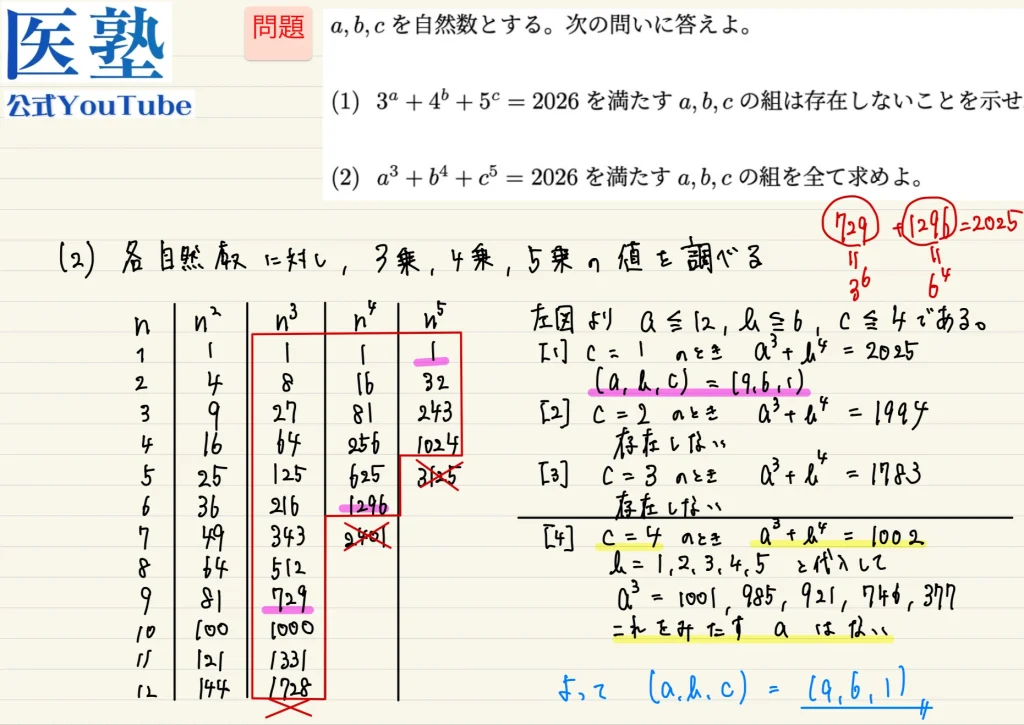 医塾
公式YouTube
問題
a, b, c を自然数とする。次の問いに答えよ。
(1) 3^a + 4^b + 5^c = 2026 を満たす a, b, c の組は存在しないことを示せ
(2) a^3 + b^4 + c^5 = 2026 を満たす a, b, c の組を全て求めよ。
729 + 1296 = 2025
= =
3^6 6^4
(2) 各自然数に対し, 3乗, 4乗, 5乗の値を調べる
n n^2 n^3 n^4 n^5
1 1 1 1 1
2 4 8 16 32
3 9 27 81 243
4 16 64 256 1024
5 25 125 625 3125
6 36 216 1296
7 49 343 2401
8 64 512
9 81 729
10 100 1000
11 121 1331
12 144 1728
左図より a ≦ 12, b ≦ 6, c ≦ 4 である。
[1] c = 1 のとき a^3 + b^4 = 2025
(a, b, c) = (9, 6, 1)
[2] c = 2 のとき a^3 + b^4 = 1994
存在しない
[3] c = 3 のとき a^3 + b^4 = 1783
存在しない
[4] c = 4 のとき a^3 + b^4 = 1002
b = 1, 2, 3, 4, 5 と代入して
a^3 = 1001, 985, 921, 746, 377
これをみたす a はない
よって (a, b, c) = (9, 6, 1)